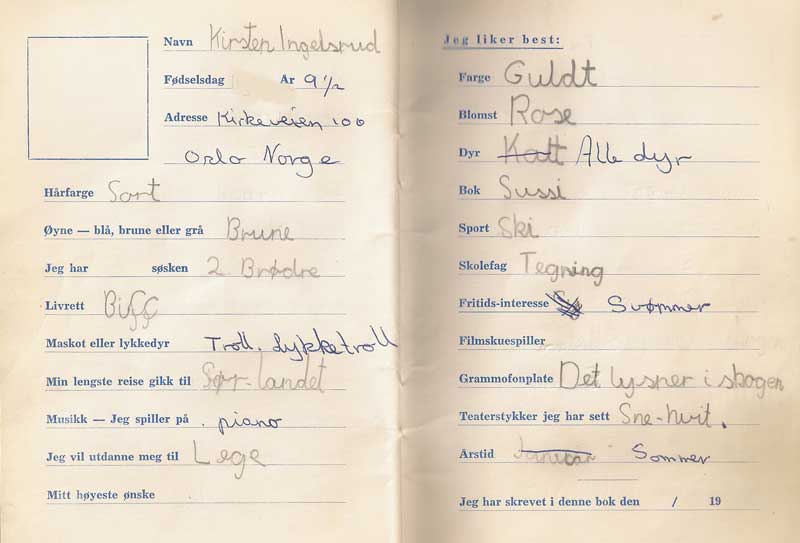 Navn Kirsten Ingelsrud
Fødselsdag År 9 1/2
Adresse Kirkeveien 100
Oslo Norge
Hårfarge Sort
Øyne — blå, brune eller grå Brune
Jeg har søsken 2 Brødre
Livrett Biff
Maskot eller lykkedyr Troll. Lykketroll
Min lengste reise gikk til Sør-landet
Musikk — Jeg spiller på . piano
Jeg vil utdanne meg til Lege
Mitt høyeste ønske
Jeg liker best:
Farge Guldt
Blomst Rose
Dyr Katt Alle dyr
Bok Sussi
Sport Ski
Skolefag Tegning
Fritids-interesse Svømmer
Filmskuespiller
Grammofonplate Det lysner i skogen
Teaterstykker jeg har sett Sne-hvit.
Årstid Januar Sommer
Jeg har skrevet i denne bok den / 19